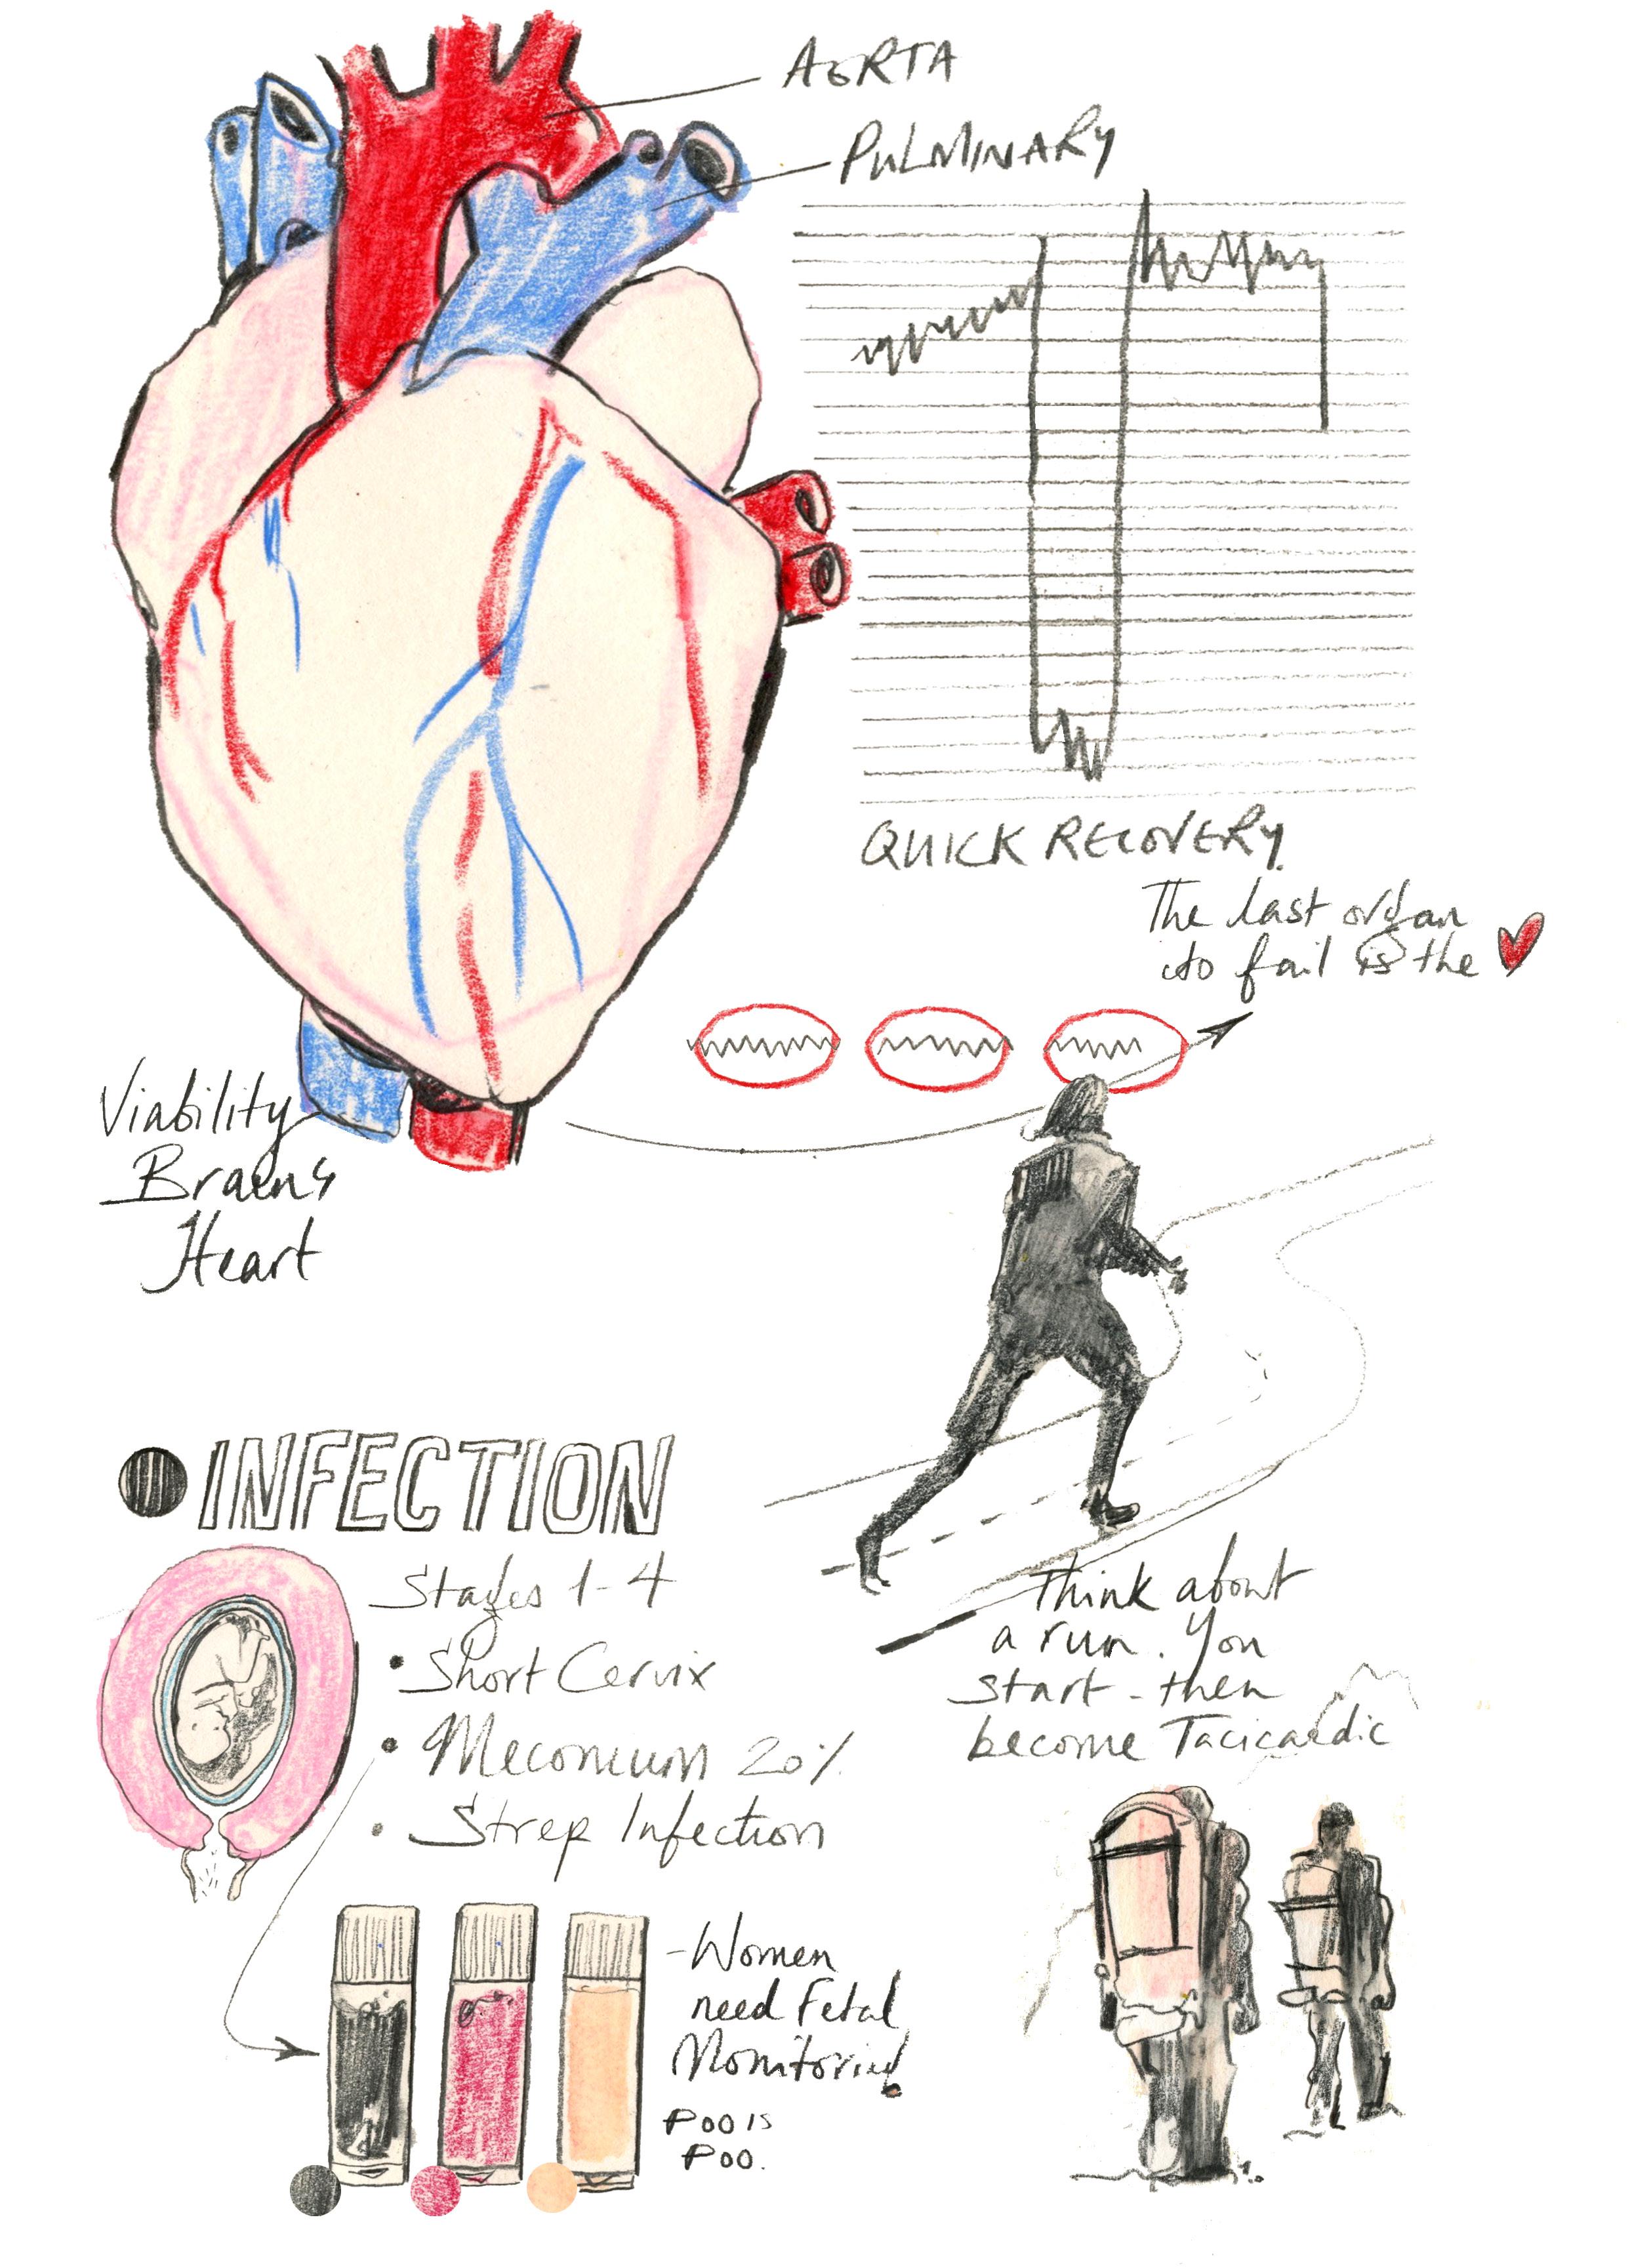 AORTA
PULMINARY
QUICK RECOVERY.
The last organ
to fail is the
Viability
Braens
Heart
INFECTION
Stages 1-4
• Short Cervix
• Meconium 20%
• Strep Infection
Think about
a run. You
start - then
become Tacicardic
- Women
need Fetal
Monitoring!
POO IS
POO.